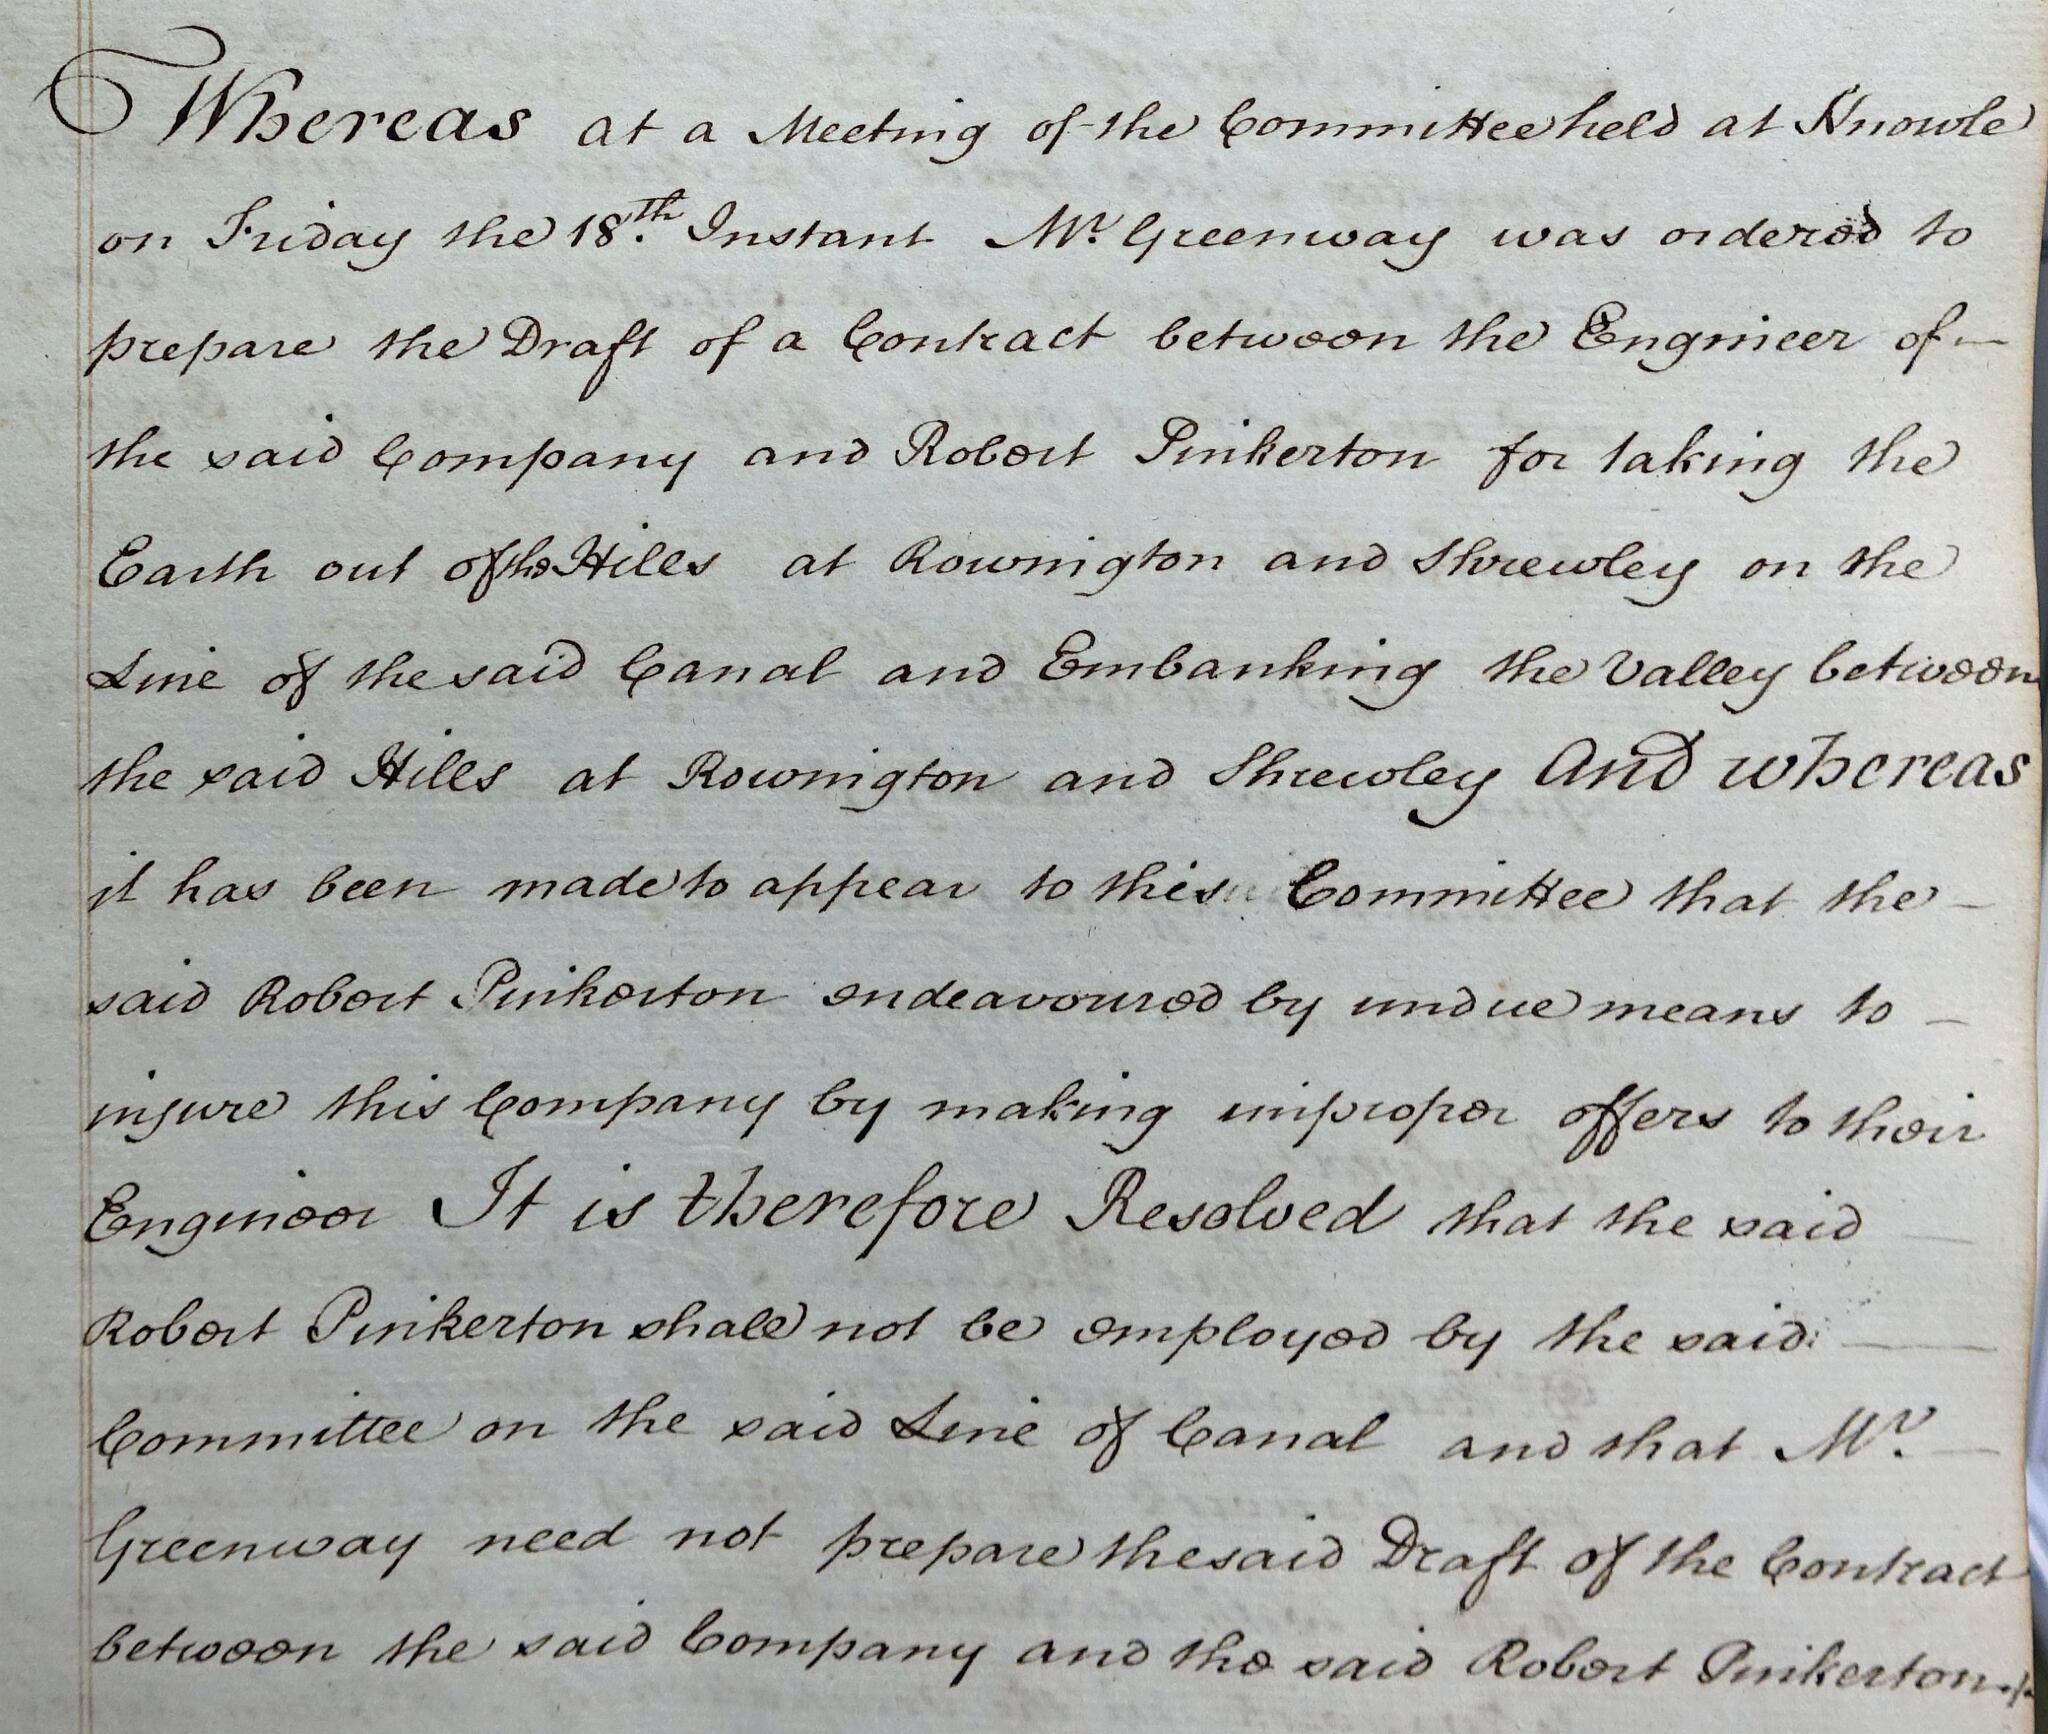 Whereas at a Meeting of the Committee held at Knowle
on Friday the 18th. Instant Mr. Greenway was ordered to
prepare the Draft of a Contract between the Engineer of
the said Company and Robert Pinkerton for taking the
Earth out of the Hills at Rowington and Shrewley on the
Line of the said Canal and Embanking the Valley between
the said Hills at Rowington and Shrewley And whereas
it has been made to appear to this Committee that the
said Robert Pinkerton endeavoured by undue means to
injure this Company by making improper offers to their
Engineer It is therefore Resolved that the said
Robert Pinkerton shall not be employed by the said
Committee on the said Line of Canal and that Mr.
Greenway need not prepare the said Draft of the Contract
between the said Company and the said Robert Pinkerton.